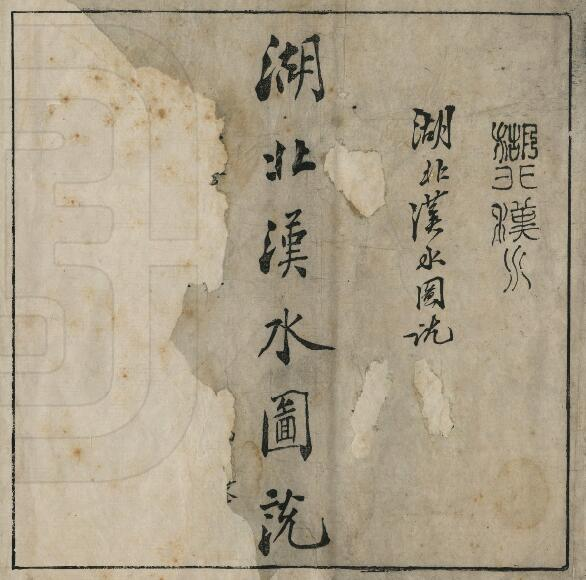 湖北漢水
湖北漢水圖說
湖北漢水圖說